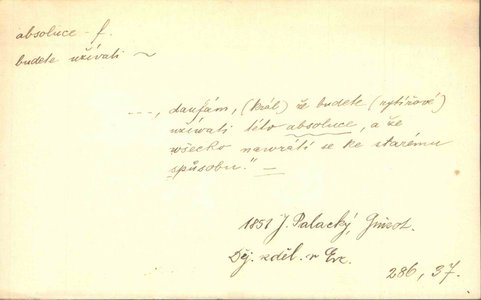 absoluce - f.
budete užívati ~
---, daufám, (král) že budete (rytířové)
užívati této absoluce, a že
wšecko nawrátí se ke starému
spůsobu." —
1851 J. Palacký, Guizot.
Děj. vzděl. v Evr.
286, 37.